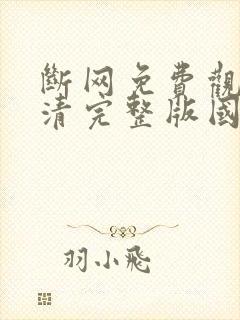 斷网免費觀
清完整版國
羽小飛